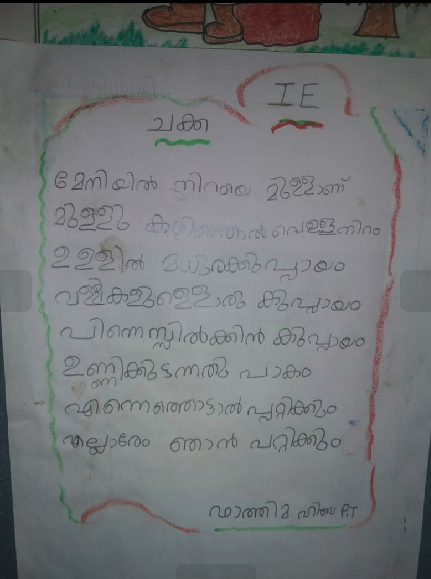 IE
ചക്ക
മേനിയിൽ നിറയെ മുള്ളാണ്
മുള്ളു കഴിഞ്ഞാൽ വെള്ളനിറം
ഉള്ളിൽ മധുരക്കുപ്പായം
വള്ളികളുള്ളൊരു കുപ്പായം
പിന്നെസ്സിൽക്കിൻ കുപ്പായം
ഉണ്ണിക്കുടന്നതു പാകം
എന്നെത്തൊട്ടാൽ പറ്റിക്കും
എല്ലാരേം ഞാൻ പറ്റിക്കും
ഫാത്തിമ ഹിബ P.T